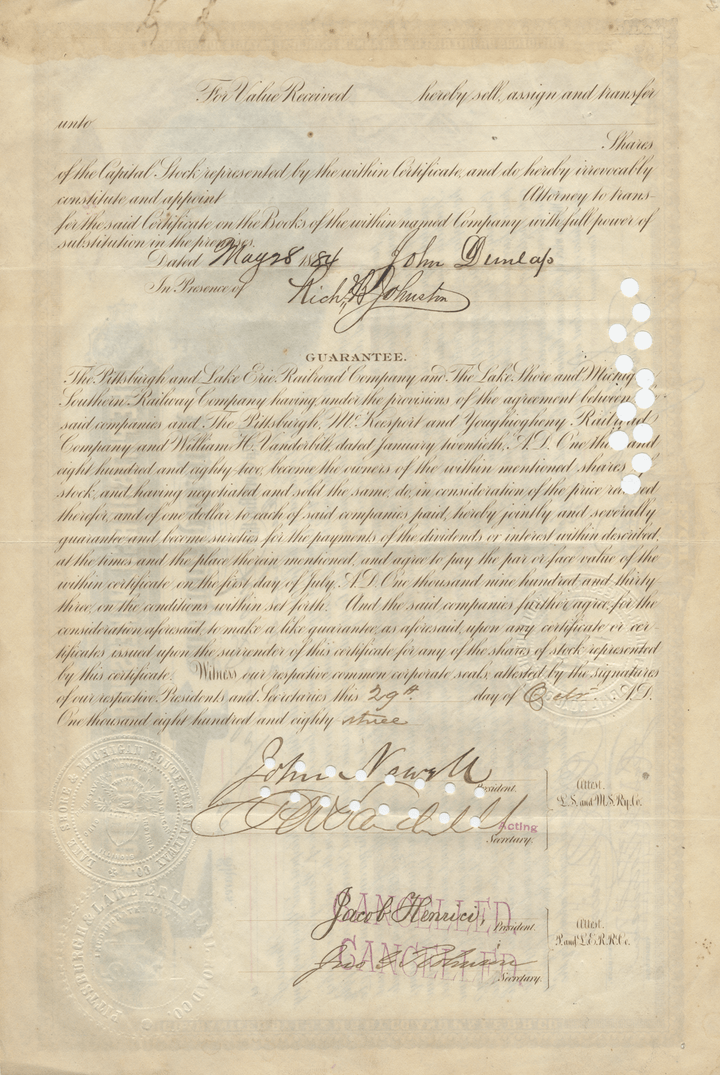 For Value Received hereby sell, assign and transfer
unto
Shares
of the Capital Stock represented by the within Certificate, and do hereby irrevocably
constitute and appoint Attorney to trans-
fer the said Certificate on the Books of the within named Company with full power of
substitution in the premises.
Dated May 28 1884 John Dunlap
In Presence of Rich. Johnston
GUARANTEE.
The Pittsburgh and Lake Erie Railroad Company and The Lake Shore and Michig
Southern Railway Company having, under the provisions of the agreement between
said companies and The Pittsburgh, McKeesport and Youghiogheny Railroad
Company and William H. Vanderbilt, dated January twentieth, A.D. One thousand
eight hundred and eighty-two, become the owners of the within mentioned shares of
stock, and having negotiated and sold the same, do, in consideration of the price received
therefor, and of one dollar to each of said companies paid, hereby jointly and severally
guarantee and become sureties for the payments of the dividends or interest within described,
at the times and the place therein mentioned, and agree to pay the par or face value of the
within certificate on the first day of July, A.D. One thousand nine hundred and thirty
three, on the conditions within set forth. And the said companies further agree, for the
consideration aforesaid, to make a like guarantee, as aforesaid, upon any certificate or cer-
tificates issued upon the surrender of this certificate for any of the shares of stock represented
by this certificate. Witness our respective common corporate seals, attested by the signatures
of our respective Presidents and Secretaries this 29th day of Octr A.D.
One thousand eight hundred and eighty three
John Newell
President.
Attest.
L.S. and M.S. Ry. Co.
Vanderbilt
Acting
Secretary.
LAKE SHORE & MICHIGAN SOUTHERN RAILWAY CO.
CANCELLED
Jacob Henrici,
President.
Attest.
P. and L.E. R.R. Co.
CANCELLED
Jno
Secretary.
PITTSBURGH & LAKE ERIE RAILROAD CO.